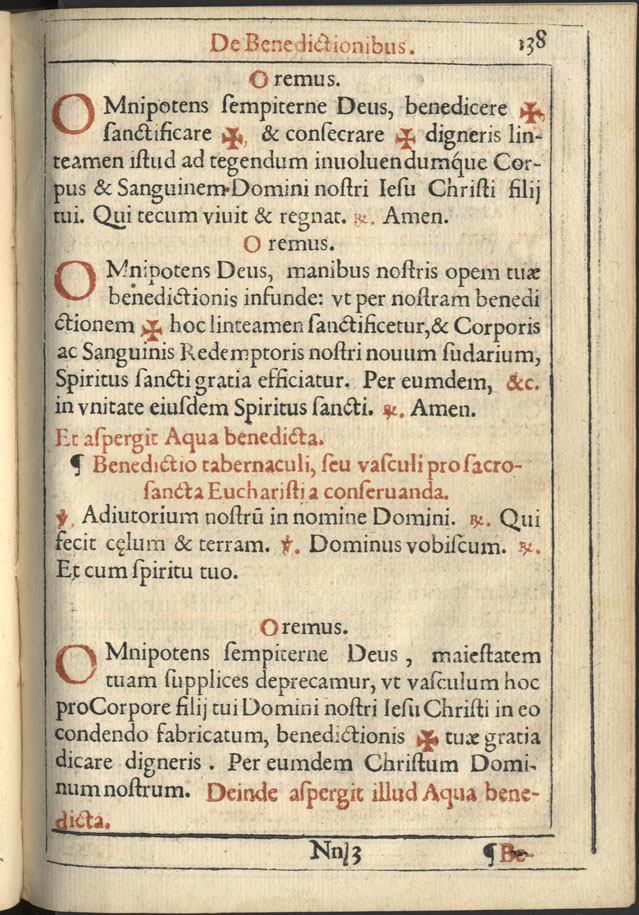 De Benedictionibus. 138
Oremus.
OMnipotens ſempiterne Deus, benedicere ✠,
ſanctificare ✠, & conſecrare ✠ digneris lin-
teamen iſtud ad tegendum inuoluendumq́ue Cor-
pus & Sanguinem Domini noſtri Ieſu Chriſti filij
tui. Qui tecum viuit & regnat. ℞. Amen.
Oremus.
OMnipotens Deus, manibus noſtris opem tuæ
benedictionis infunde: vt per noſtram benedi
ctionem ✠ hoc linteamen ſanctificetur, & Corporis
ac Sanguinis Redemptoris noſtri nouum ſudarium,
Spiritus ſancti gratia efficiatur. Per eumdem, &c.
in vnitate eiuſdem Spiritus ſancti. ℞. Amen.
Et aſpergit Aqua benedicta.
¶ Benedictio tabernaculi, ſeu vaſculi pro ſacro-
ſancta Euchariſtia conſeruanda.
℣. Adiutorium noſtrū in nomine Domini. ℞. Qui
fecit cęlum & terram. ℣. Dominus vobiſcum. ℞.
Et cum ſpiritu tuo.
Oremus.
OMnipotens ſempiterne Deus, maieſtatem
tuam ſupplices deprecamur, vt vaſculum hoc
pro Corpore filij tui Domini noſtri Ieſu Chriſti in eo
condendo fabricatum, benedictionis ✠ tuæ gratia
dicare digneris. Per eumdem Chriſtum Domi-
num noſtrum. Deinde aſpergit illud Aqua bene-
dicta.
Nn 3 ¶ Be-